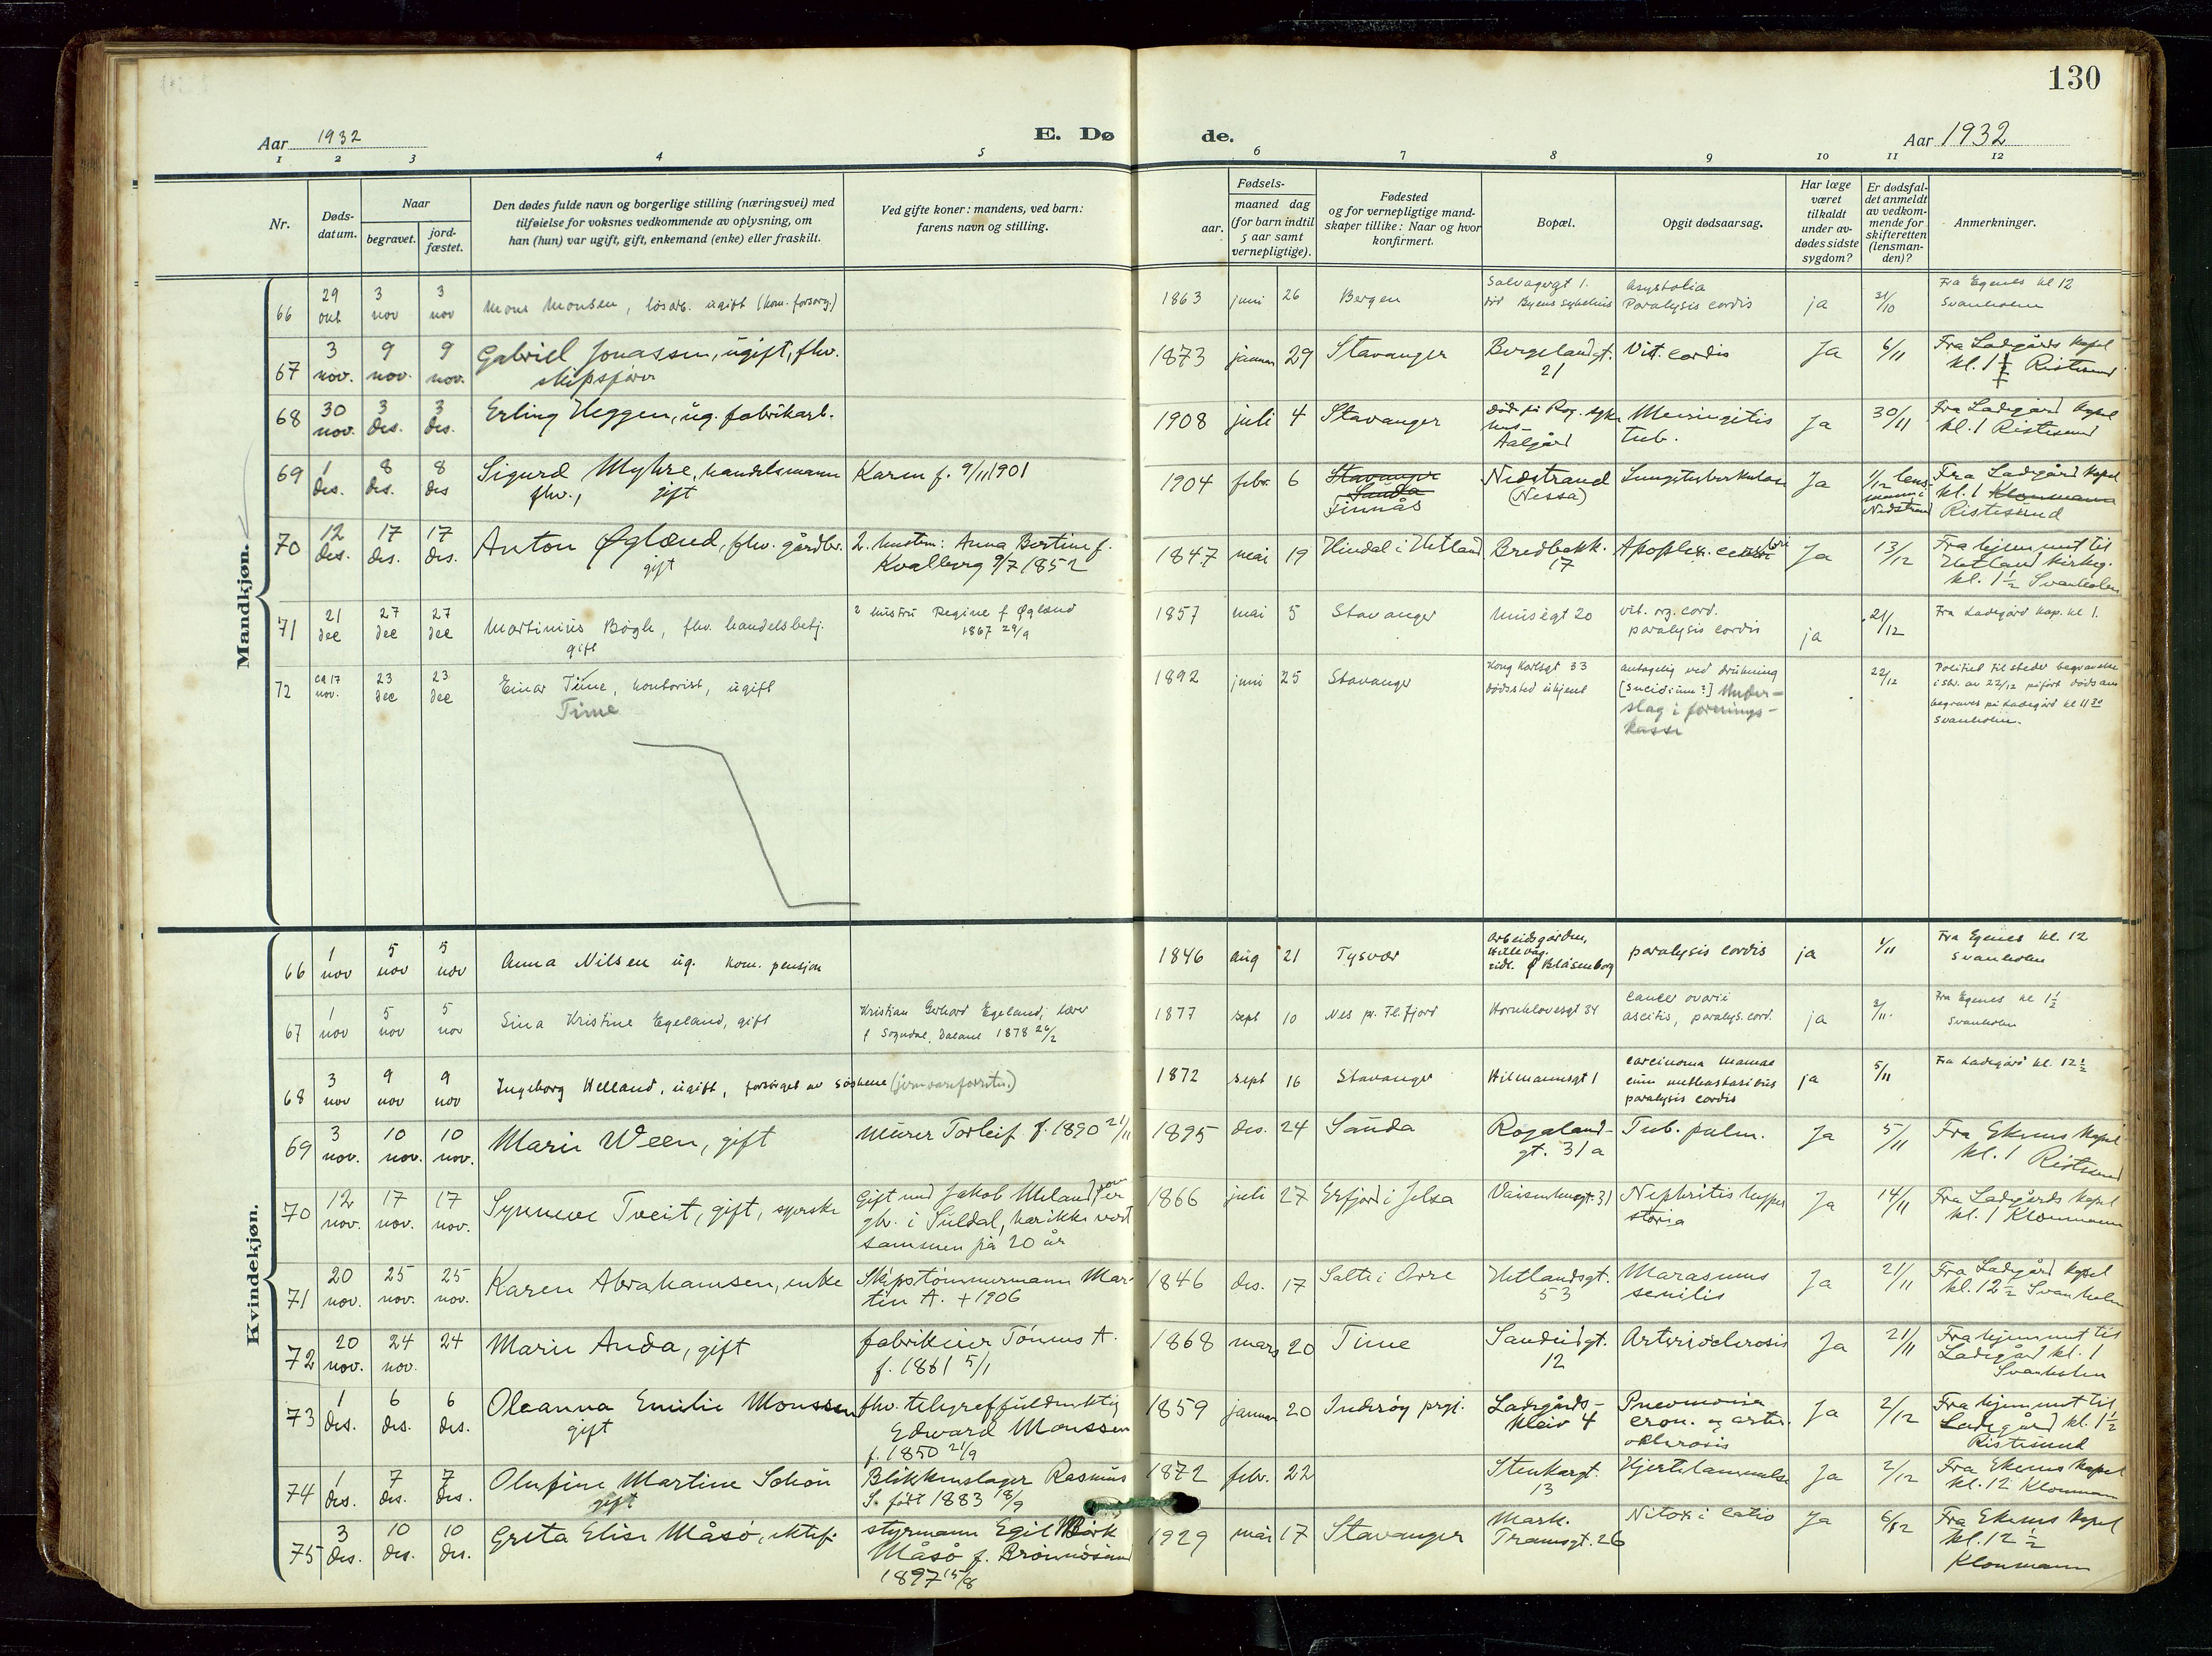 130
Aar 1932
E. Dø
de.
Aar 1932
1 2 3 4 5 6 7 8 9 10 11 12
Nr.
Døds-
datum.
Naar
begravet.
jord-
fæstet.
Den dødes fulde navn og borgerlige stilling (næringsvei) med
tilføielse for voksnes vedkommende av oplysning, om
han (hun) var ugift, gift, enkemand (enke) eller fraskilt.
Ved gifte koner: mandens, ved barn:
farens navn og stilling.
Fødsels-
aar.
maaned dag
(for barn indtil
5 aar samt
vernepligtige).
Fødested
og for vernepligtige mand-
skaper tillike: Naar og hvor
konfirmert.
Bopæl.
Opgit dødsaarsag.
Har læge
været
tilkaldt
under av-
dødes sidste
sygdom?
Er dødsfal-
det anmeldt
av vedkom-
mende for
skifteretten
(lensman-
den)?
Anmerkninger.
Mandkjøn.
66 29 okt 3 nov 3 nov Mons Monsen, løsarb. ugift (kom. forsorg.) 1863 juni 26 Bergen
Salvagergt 1.
død Byens sykehus
asystolia
Paralysis cordis
ja 31/10
Fra Egenes kl 12
Svanholm
67 3 nov. 9 nov. 9 nov. Gabriel Jonassen, ugift, fhv.
skipsfører
1873 januar 29 Stavanger
Bergelandgt.
21
Vit. cordis Ja 6/11
Fra Ladgårds kapel
kl. 1 Ristesund
68 30 nov. 3 des. 3 des. Erling Heggen, ug. fabrikarb.
1908 juli 4 Stavanger
død på Rog. syke
hus-
Aalgård
Meningitis
tub.
Ja 30/11
Fra Ladegård kapel
kl. 1 Ristesund
69 1 des. 8 des. 8 des Sigurd Myhre, handelsmann
fhv., gift
Karen f. 9/11 1901
1904 febr. 6
Stavanger
Sauda
Finnås
Nedstrand
(Nessa)
Lungetuberkulose Ja
1/12 lens-
mann i
Nedstrand
Fra Ladegård kapel
kl. 1 Klonmann
Ristesund
70 12 des. 17 des. 17 des. Anton Øglænd, fhv. gårdbr.
gift
2. hustru: Anna Bertine f.
Kvalberg 9/7 1852
1847 mai 19 Hindal i Hetland
Bredbakk.
17
Apoplex. cerebri Ja 13/12
Fra hjemmet til
Hetland kirkeg.
kl. 1½ Svanholm
71 21 dec 27 dec 27 dec Martinius Bøgh, fhv. handelsbetj.
gift
2 hustru Regine f Øglænd
1867 29/9
1857 mai 5 Stavanger Musègt 20
vit. org. cord.
paralysis cordis
ja 21/12 Fra Ladegård kap. kl 1.
72 ca 17 nov. 23 dec 23 dec Einar Time, kontorist, ugift
Time
1892 juni 25 Stavanger
Kong Karlsgt 33
dødssted ukjent
antagelig ved drukning
[suicidium?] Under-
slag i forenings-
kasse
22/12
Politiet tilsteder begravelse
i skr. av 22/12 påført dødsanm
begraves på Ladegård kl 11 30
Svanholm.
Kvindekjøn.
66 1 nov 5 nov 5 nov Anna Nilsen ug. kom. pensjon
1846 aug 21 Tysvær
Arbeidsgården,
Hillevåg.
tidl. Ø Blåsenborg
paralysis cordis ja 1/11
Fra Egenes kl. 12
Svanholm
67 1 nov 5 nov 5 nov Sina Kristine Egeland, gift
Kristian Gerhard Egeland, lærer
f Sogndal, Dalane 1878 26/2
1877 sept 10 Nes pr. Fl.fjord Hornklovesgt 34
cancer ovarii
ascitis, paralys. cord.
ja 2/11
Fra Egenes kl 1½
Svanholm
68 3 nov 9 nov 9 nov Ingeborg Helland, ugift, forsørget av søskene (jernvareforretn.)
1872 sept 16 Stavanger Hilmannsgt 1
carcinoma mamae
cum metastasibus
paralysis cordis
ja 5/11 Fra Ladegård kl. 12½
69 3 nov. 10 nov. 10 nov. Marie Ween, gift Murer Torleif f. 1890 21/11
1895 des. 24 Sauda
Rogaland-
gt. 31a
Tub. pulm. Ja 5/11
Fra Ekenes kapel
kl. 1 Ristesund
70 12 nov. 17 nov. 17 nov. Synneve Tveit, gift, syerske
Gift med Jakob Meland som er
gbr. i Suldal, har ikke vært
sammen på 20 år
1866 juli 27 Erfjord i Jelsa Vaisenhusgt. 31
Nephritis hyper
tonia
Ja 14/11
Fra Ladgårds kapel
kl. 1 Klonmann
71 20 nov. 25 nov. 25 nov. Karen Abrahamsen, enke
Skipstømmermann Mar-
tin A. + 1906
1846 des. 17 Salte i Orre
Hetlandsgt.
53
Marasmus
senilis
Ja 21/11
Fra Ladegård kapel
kl. 12½ Svanholm
72 20 nov. 24 nov. 24 Marie Anda, gift
fabrikeier Tønnes A.
f. 1861 5/1
1868 mars 20 Time
Sandeidgt.
12
Arteriosclerosis Ja 21/11
Fra hjemmet til
Ladegård kl. 1
Svanholm
73 1 des. 6 des. 6 des. Oleanna Emilie Monssen
gift
fhv. telegraffuldmektig
Edward Monssen
f. 1850 21/9
1859 januar 20 Inderøy prgj.
Ladegårds-
kleiv 4
Pneumonia
cron. og arter.
osclerosis
Ja 2/12
Fra hjemmet til
Ladegård kl. 1½
Ristesund
74 1 des. 7 des. 7 des. Olufine Martine Schou
gift
Blikkenslager Rasmus
S. født 1883 18/9
1872 febr. 22
Stenkargt.
13
Hjertelammelse Ja 2/12
Fra Ekenes kapel
kl. 12 Klonmann
75 3 des. 10 des. 10 des. Greta Elise Måsø, ektef.
styrmann Egil Mørk
Måsø f. Brønnøsund
1897 15/8
1929 mai 17 Stavanger
Mark.
Tranesgt. 26
Ja 6/12
Fra Ekenes kapel
kl. 12½
Klonmann